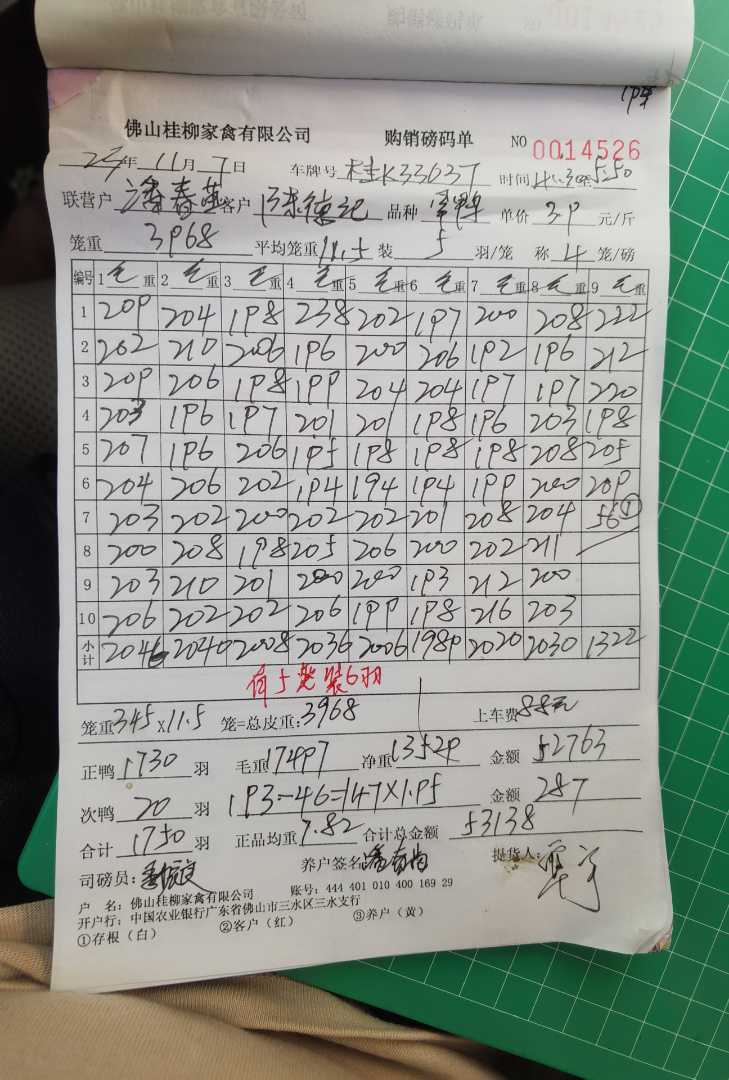 佛山桂柳家禽有限公司 购销磅码单 NO 0014526
年 11月7日 车牌号 桂K33037 时间 4:30至5:50
联营户 潘春 客户 陈德记 品种 单价 3.9 元/斤
笼重 3968 平均笼重 11.5 装 5 羽/笼 称 4 笼/磅
编号 1 毛重 2 毛重 3 毛重 4 毛重 5 毛重 6 毛重 7 毛重 8 毛重 9 毛重
1 209 204 198 238 202 197 200 208 222
2 202 210 206 196 200 206 192 196 212
3 209 206 198 199 204 204 197 197 220
4 203 196 197 201 201 198 196 203 198
5 207 196 206 195 198 198 198 208 205
6 204 206 202 194 194 194 199 200 209
7 203 202 200 202 202 201 208 204 56①
8 200 208 198 205 206 200 202 211
9 203 210 201 200 200 193 212 200
10 206 202 202 206 199 198 216 203
小计 2046 2040 2008 2036 2006 1989 2020 2030 1322
有5笼装6羽
笼重 345×11.5 笼=总皮重: 3968 上车费 88元
正鸭 1730 羽 毛重 17497 净重 13529 金额 52763
次鸭 20 羽 193-46=147×1.95 金额 287
合计 1750 羽 正品均重 7.82 合计总金额 53138
司磅员: 养户签名 潘春 提货人:
户 名: 佛山桂柳家禽有限公司 账号: 444 401 010 400 169 29
开户行: 中国农业银行广东省佛山市三水区三水支行
①存根(白) ②客户(红) ③养户(黄)